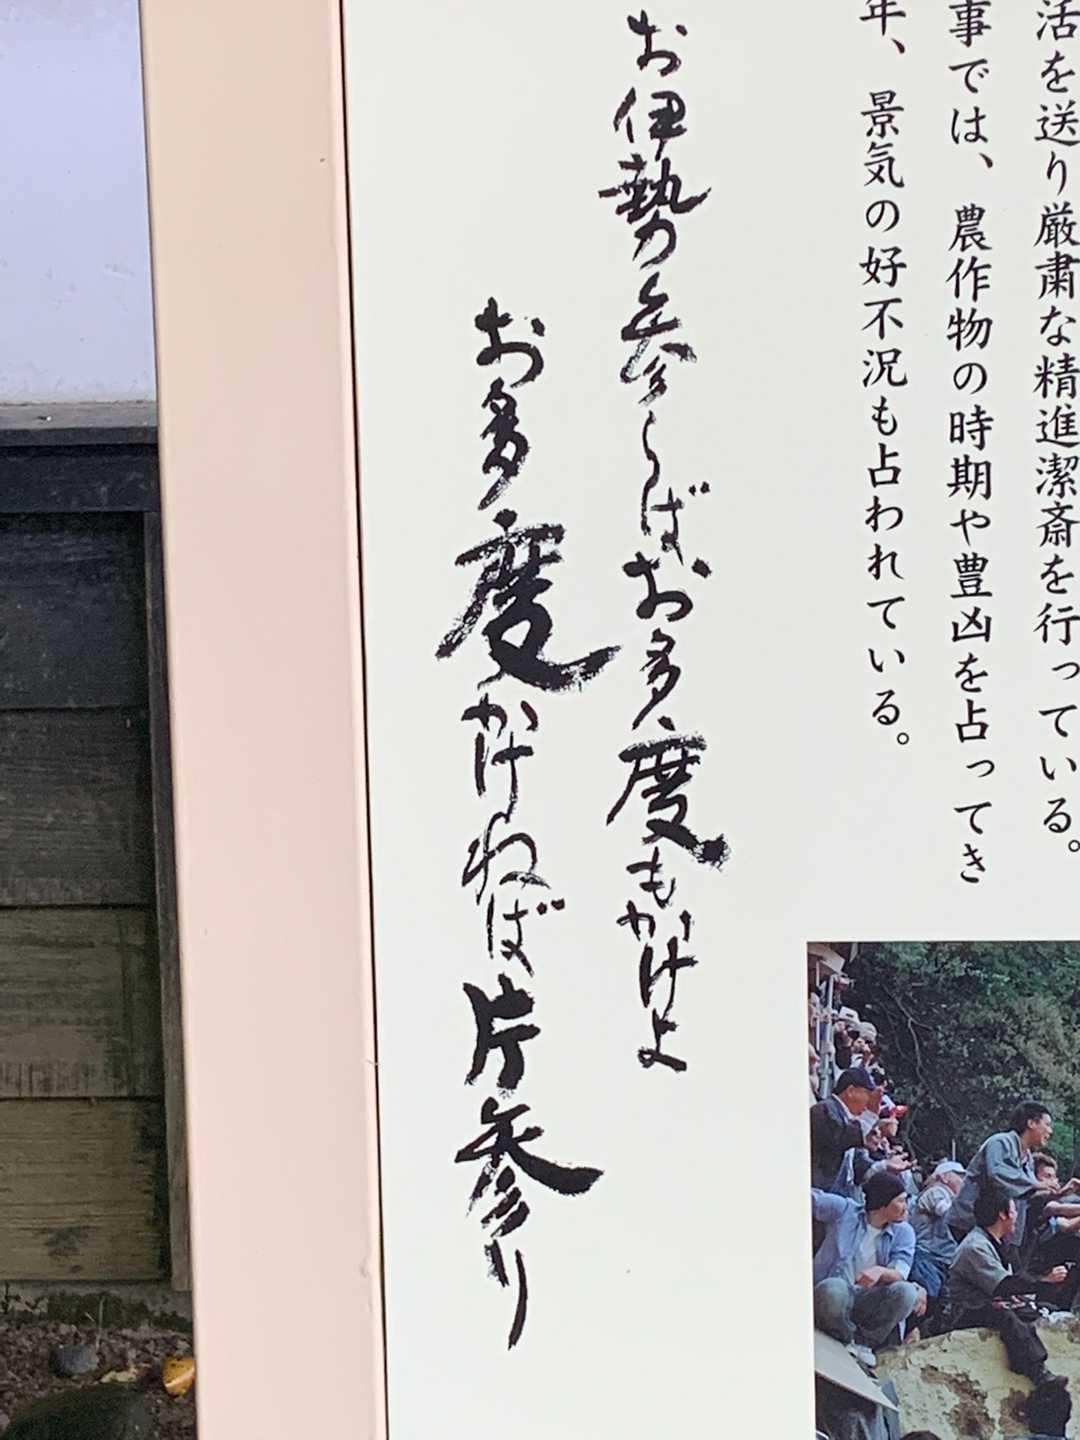 活を送り厳粛な精進潔斎を行っている。
事では、農作物の時期や豊凶を占ってき
年、景気の好不況も占われている。
お伊勢参らばお多度もかけよ
お多度かけねば片参り